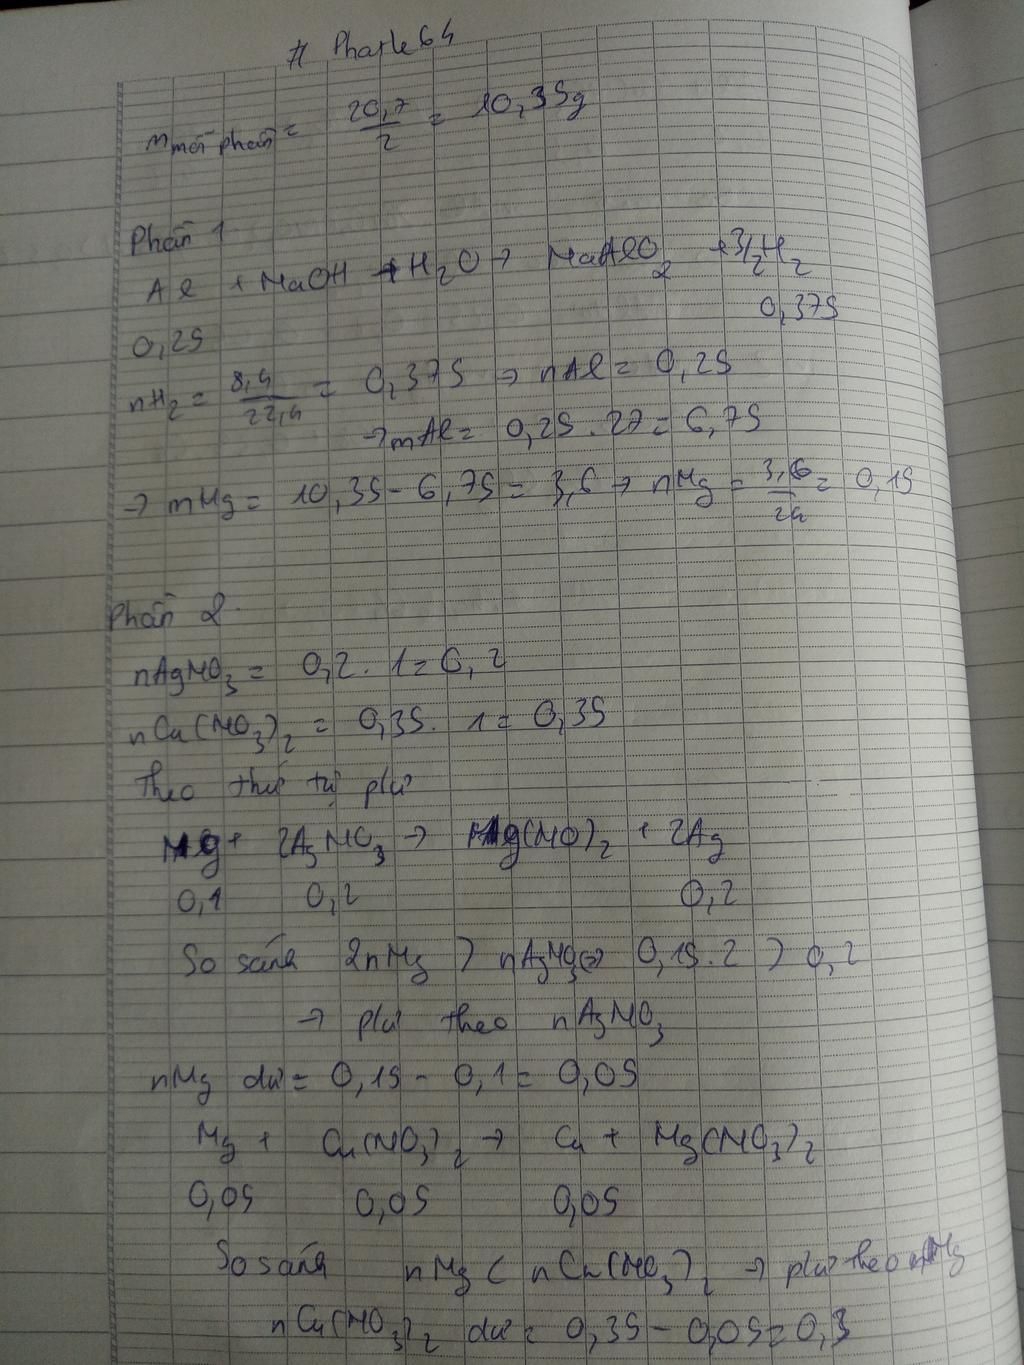 # Phatle64
m mỗi phần = 20,7/2 = 10,35g
Phần 1
Al + NaOH + H2O → NaAlO2 + 3/2H2
0,25 0,375
nH2 = 8,4/22,4 = 0,375 → nAl = 0,25
→ mAl = 0,25 . 27 = 6,75
→ mMg = 10,35 - 6,75 = 3,6 → nMg = 3,6/24 = 0,15
Phần 2
nAgNO3 = 0,2 . 1 = 0,2
nCu(NO3)2 = 0,35 . 1 = 0,35
Theo thứ tự pứ
Mg + 2AgNO3 → Mg(NO)2 + 2Ag
0,1 0,2 0,2
So sánh 2nMg > nAgNO3 ⇔ 0,15.2 > 0,2
→ pứ theo nAgNO3
nMg dư = 0,15 - 0,1 = 0,05
Mg + Cu(NO3)2 → Cu + Mg(NO3)2
0,05 0,05 0,05
So sánh nMg < nCu(NO3)2 → pứ theo nMg
nCu(NO3)2 dư = 0,35 - 0,05 = 0,3